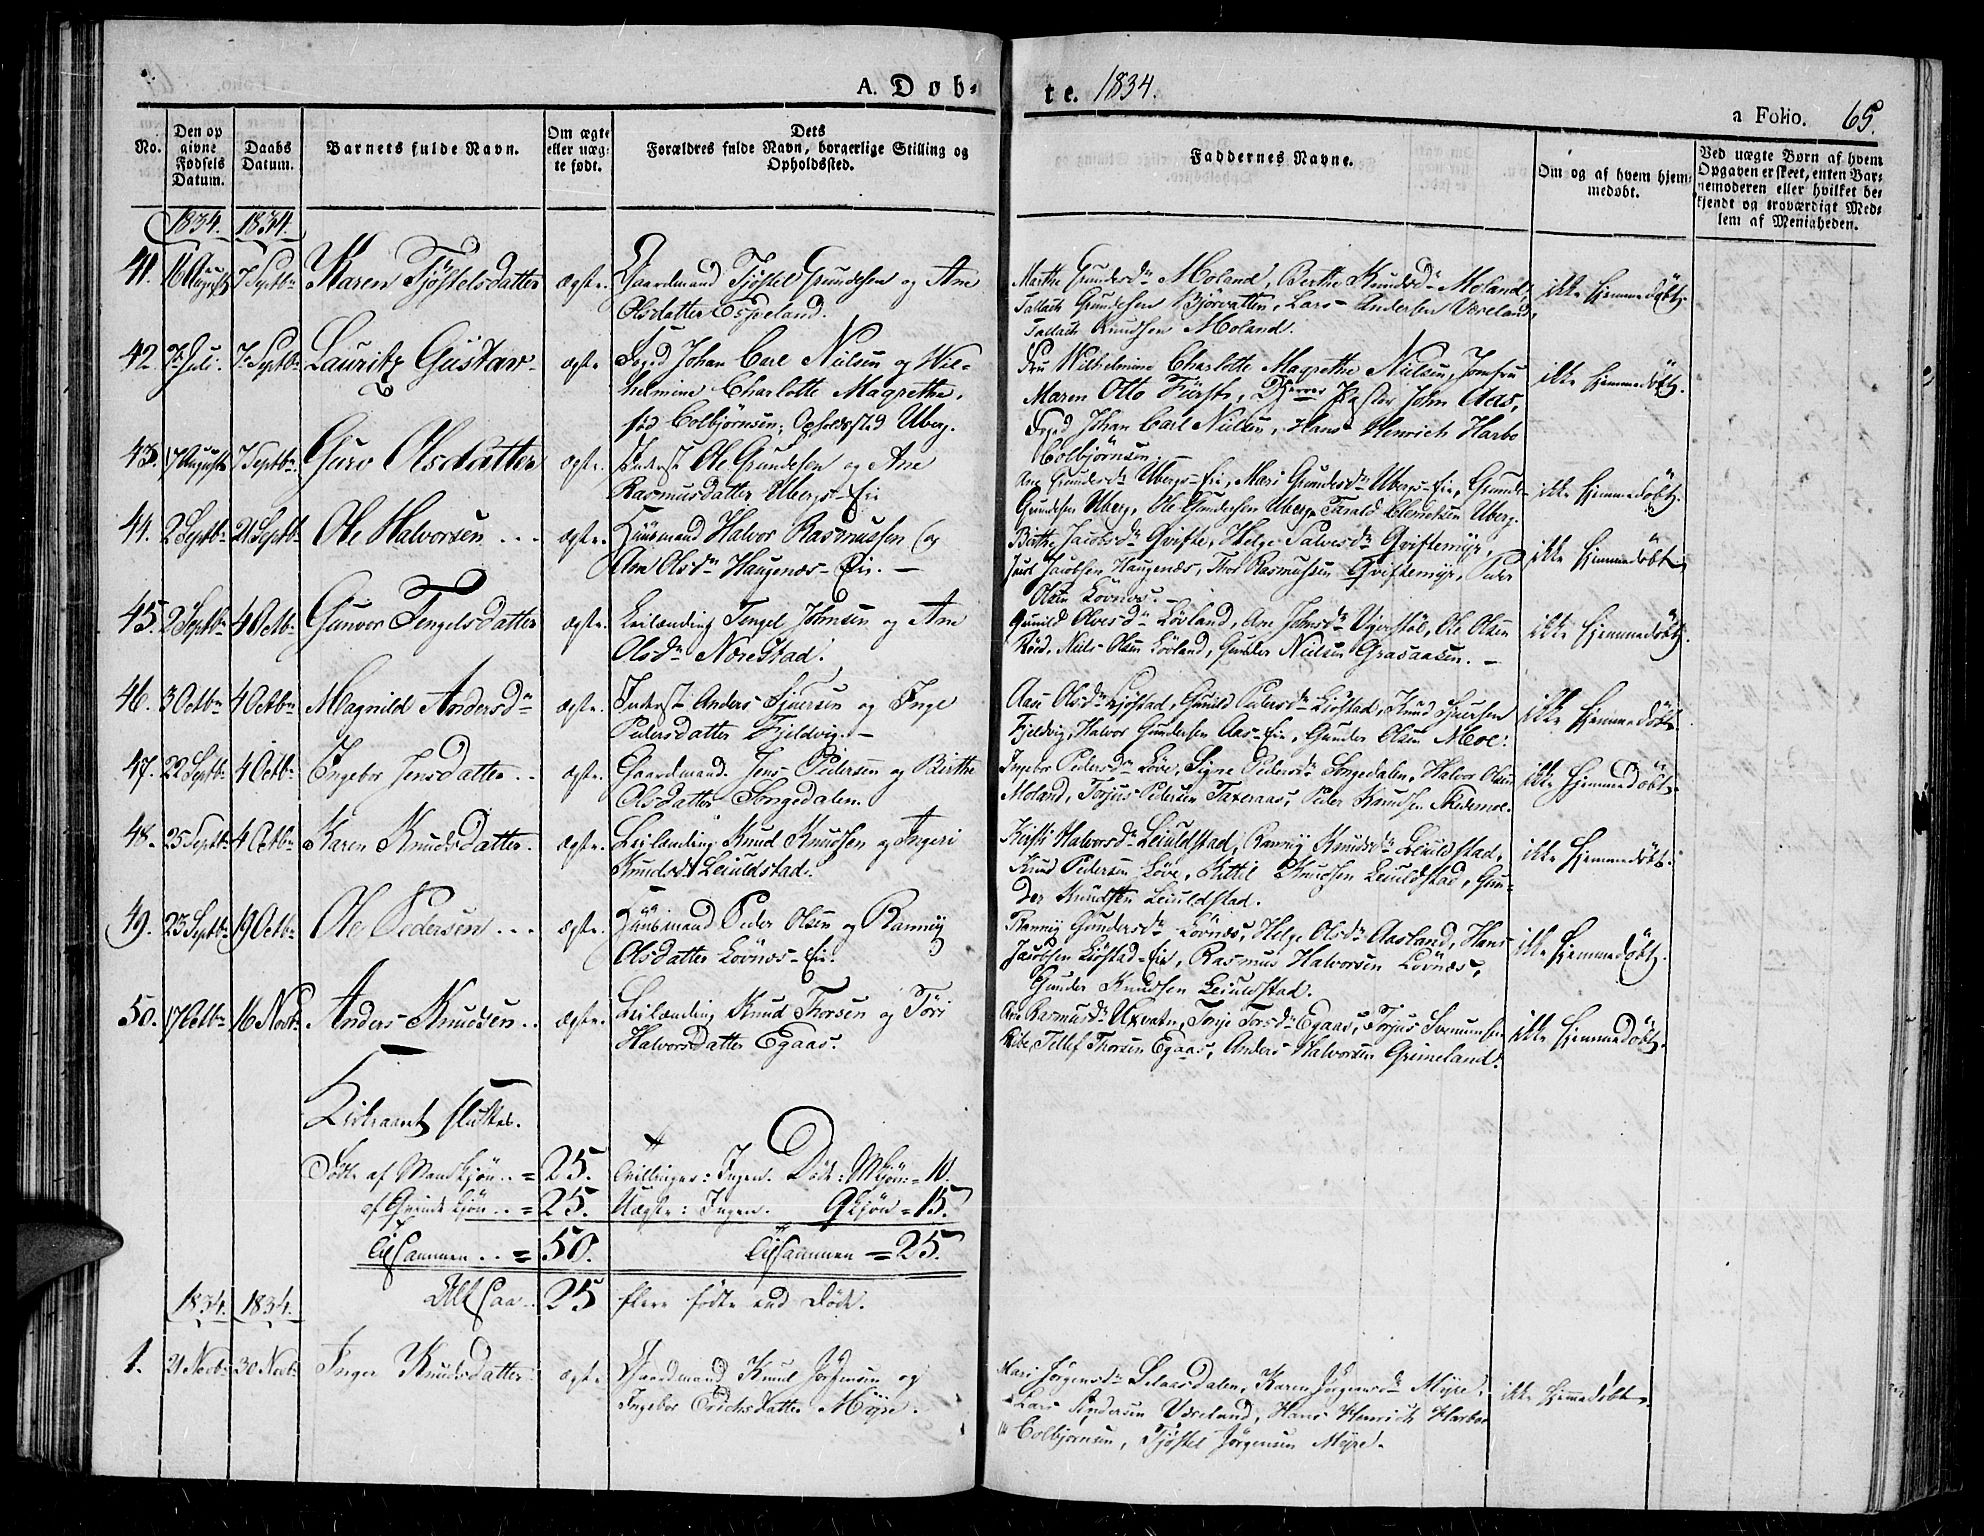 A. Døb-
te. 1834.
a Folio. 65.
No.
Den op
givne
Fødsels
Datum.
Daabs
Datum.
Barnets fulde Navn.
Om ægte
eller uæg-
te født.
Dets
Forældres fulde Navn, borgerlige Stilling og
Opholdssted.
Faddernes Navne.
Om og af hvem hjem-
medøbt.
Ved uægte Børn af hvem
Opgaven er skeet, enten Bar-
nemoderen eller hvilket be-
kjendt og troværdigt Med-
lem af Menigheden.
1834. 1834.
41. 16 August 7 Septbr Karen Tjøstelsdatter ægte. Gaardmand Tjøstel Grundesen og Ane
Olsdatter Espeland.
Marthe Grundesdr Moland, Berthe Knudsdr Moland,
Tallach Grundesen Bjorvatten, Lars Andersen Vreland,
Tallach Knudsen Moland.
ikke hjemmedøbt.
42. 7 Juli. 7 Septbr Lauritz Gustav ægte. Foged Johan Carl Nielsen og Wil-
helmine Charlotte Magrethe,
fød Colbjørnsen; Opholdssted Uberg.
Fru Wilhelmine Charlotte Magrethe Nielsen, Jomfru
Maren Otto Fürst, Dhrrer Pastor John Aas,
Foged Johan Carl Nielsen, Hans Henrich Harbo
Colbjørnsen.
ikke hjemmedøbt.
43. 17 August 7 Septbr. Guro Olsdatter ægte. Inderst Ole Grundesen og Ane
Rasmusdatter Ubergs-Eie
Ane Grundesdr Ubergs-Eie, Mari Grundesdr Ubergs-Eie, Grunde
Grundesen Uberg, Ole Gundersen Uberg, Tarald Clemetsen Uberg.
ikke hjemmedøbt.
44. 2 Septbr 21 Septbr Ole Halvorsen ægte. Huusmand Halvor Rasmussen og
Ane Olsdr Haugenæs-Eie.
Birthe Jacobsdr Qvifte, Helge Salvesdr Qviftemyr,
Just Jacobsen Haugenæs, Thor Rasmussen Qviftemyr, Peder
Olsen Lövnæs.
ikke hjemmedøbt.
45. 2 Septbr 4 Octbr Gunvor Tengelsdatter ægte. Leilænding Tengel Johnsen og Ane
Olsdr Nærestad.
Gunild Olvesdr Lövland, Ane Johnsdr Vigerstöl, Ole Olsen
Röed, Niels Olsen Lövland, Gunder Nielsen Graaaasen.
ikke hjemmedøbt.
46. 3 Octbr 4 Octbr Magnild Andersdr ægte. Inderst Anders Sjursen og Inge
Pedersdatter Fjeldvig.
Aase Olsdr Ljøstad, Gunild Pedersdr Ljøstad, Knud Sjursen
Fjeldvig, Halvor Gundersen Aas-Eie, Gunder Olsen Moe.
ikke hjemmedøbt.
47. 22 Septbr 4 Octbr Ingebor Jensdatter ægte. Gaardmand Jens Pedersen og Birthe
Olsdatter Songedalen.
Ingebor Pedersdr Löve, Signe Pedersdr Songedalen, Halvor Olsen
Moland, Torjus Pedersen Taxeraas, Peder Knudsen Skedemoe.
ikke hjemmedøbt.
48. 25 Septbr 4 Octbr Karen Knudsdatter ægte. Leilænding Knud Knudsen og Ingeri
Knudsdr Leiuldstad.
Kirsti Halvorsdr Leiuldstad, Rannöy Knudsdr Leiuldstad,
Knud Pedersen Löve, Kittil Knudsen Leiuldstad, Gun-
der Knudsen Leiuldstad.
ikke hjemmedøbt.
49. 23 Septbr 19 Octbr Ole Pedersen ægte. Huusmand Peder Olsen og Rannöy
Olsdatter Lövnæs-Eie.
Rannöy Gundersdr Lövnæs, Helge Olsdr Aasland, Hans
Jacobsen Ljøstad-Eie, Rasmus Halvorsen Lövnæs,
Gunder Knudsen Leiuldstad.
ikke hjemmedøbt.
50. 17 Octbr 16 Novbr Anders Knudsen ægte. Leilænding Knud Thorsen og Töri
Halvorsdatter Egaas.
Ane Rasmusdr Uxvatn, Tonje Torsdr Egaas, Torjus Svenumsen
Ribe, Tellef Thorsen Egaas, Anders Halvorsen Grimeland.
ikke hjemmedøbt.
Kirkeaaret sluttes.
Födte af Mandkjön = 25. Tvillinger: Ingen. Döde: Mkjön = 10.
af Qvindekjön = 25. Uægte: Ingen. Qkjön = 15.
tilsammen = 50. tilsammen = 25.
Altsaa 25 flere födte end Döde.
1834. 1834.
1. 21 Novbr 30 Novbr Inger Knudsdatter ægte Gaardmand Knud Jörgensen og
Ingebor Erichsdatter Myre.
Mari Jörgensdr Selaasdalen, Karen Jörgensdr Myre,
Lars Andersen Vreland, Hans Henrich Harboe
Colbjørnsen, Tjøstel Jörgensen Myre.
ikke hjemmedøbt.